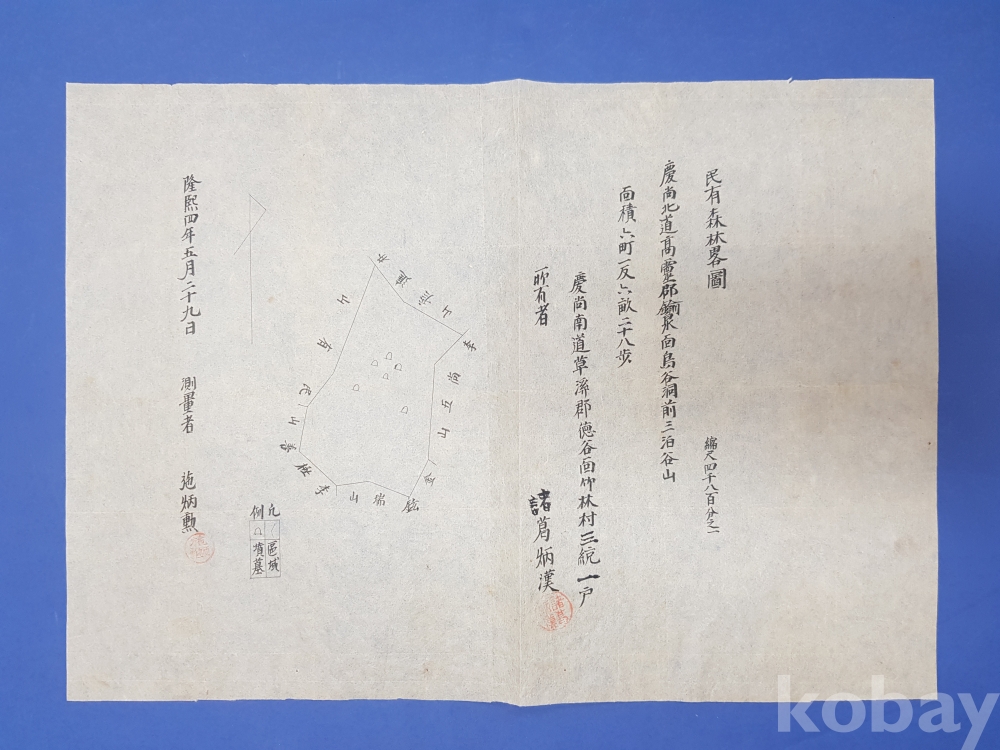 民有森林畧圖
縮尺四千八百分之一
慶尚北道高靈郡鍮泉面烏谷洞前三泊谷山
面積六町一反六畝二十八步
慶尚南道草溪郡德谷面竹林村三統一戶
所有者
諸葛炳漢
李尚五山
山瑞鉉金
國有山
凡例
區域
墳墓
隆熙四年五月二十九日
測量者 施炳勳
kobay